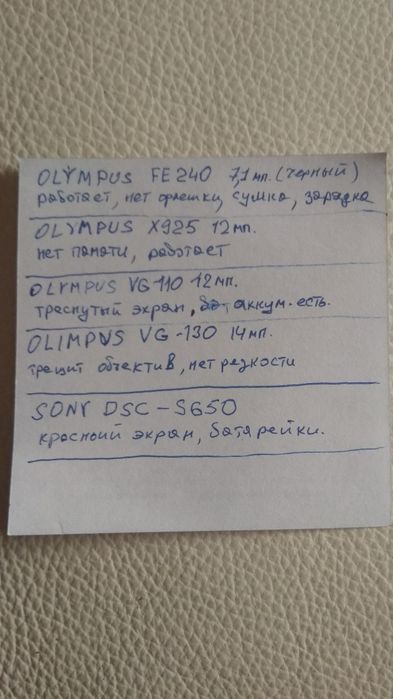 OLYMPUS FE240 7,1 мп. (черный)
работает, нет флешки, сумка, зарядка
OLYMPUS X925 12мп.
нет памяти, работает
OLYMPUS VG-110 12мп.
треснутый экран, аккум. есть.
OLIMPUS VG-130 14мп.
трещит объектив, нет резкости
SONY DSC-S650
красный экран, батарейки.